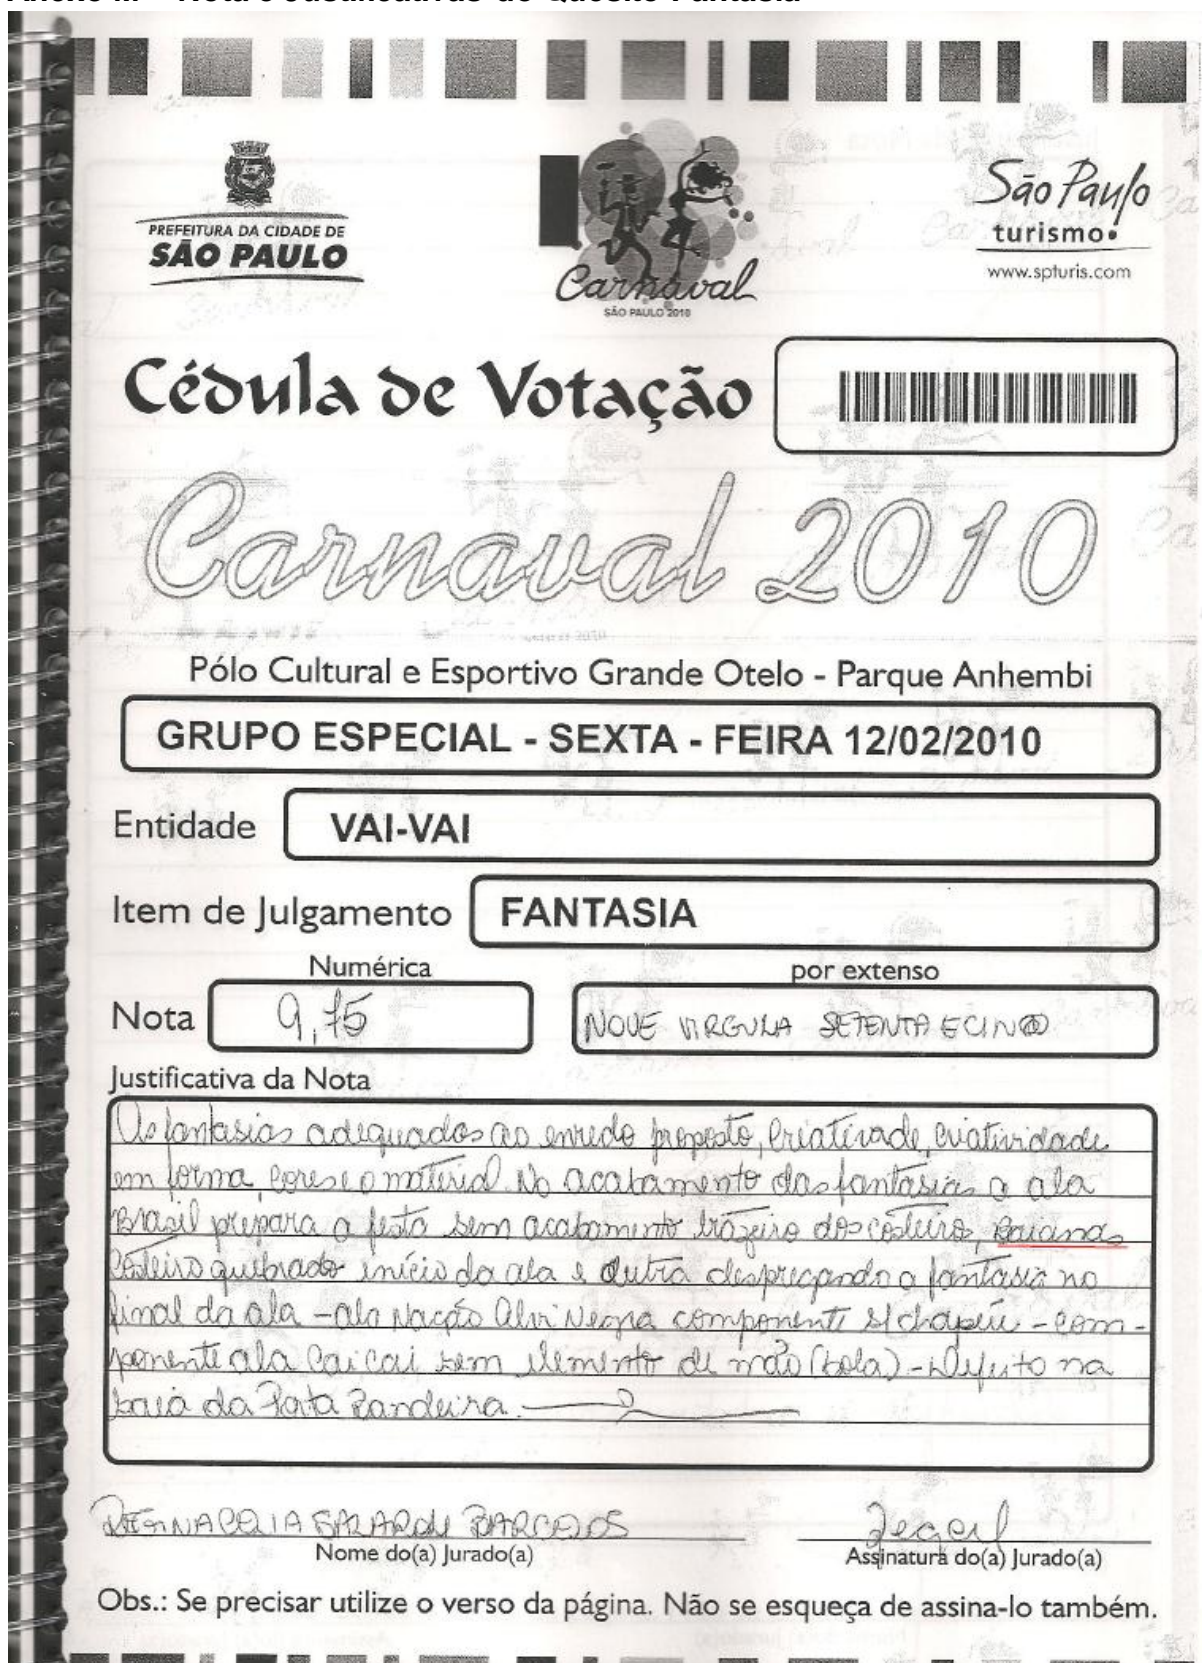 PREFEITURA DA CIDADE DE
SÃO PAULO
Carnaval
SÃO PAULO 2010
São Paulo
turismo
www.spturis.com
Cédula de Votação
Carnaval 2010
Pólo Cultural e Esportivo Grande Otelo - Parque Anhembi
GRUPO ESPECIAL - SEXTA - FEIRA 12/02/2010
Entidade VAI-VAI
Item de Julgamento FANTASIA
Numérica por extenso
Nota 9,75 NOVE VIRGULA SETENTA E CINCO
Justificativa da Nota
As fantasias adequados ao enredo proposto, criativade, criatividade
em forma, cores e o material. No acabamento das fantasias a ala
Brasil prepara a festa sem acabamento trazeiro dos costeiro, Baianas
Costeiro quebrado início da ala e outra despregando a fantasia no
final da ala - ala Nação Alvi Negra componente s/ chapéu - com-
ponente ala Cai cai sem elemento de mão (bola) - Defeito na
saia da Porta Bandeira.
Nome do(a) Jurado(a) Assinatura do(a) Jurado(a)
Obs.: Se precisar utilize o verso da página. Não se esqueça de assina-lo também.